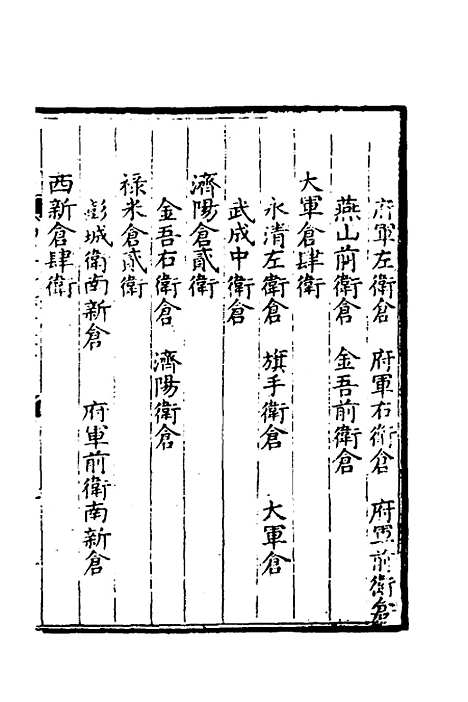 府軍左衛倉　府軍右衛倉　府軍前衛倉
燕山前衛倉　金吾前衛倉
大軍倉肆衛
永清左衛倉　旗手衛倉　大軍倉
武成中衛倉
濟陽倉貳衛
金吾右衛倉　濟陽衛倉
祿米倉貳衛
彭城衛南新倉　府軍前衛南新倉
西新倉肆衛